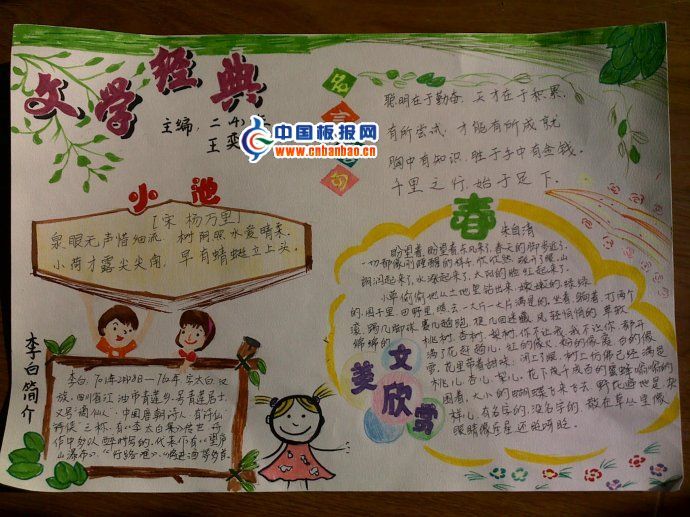 文学经典
主编：二(4)
王奕
中国板报网
www.cnbanbao.cn
名言警句
聪明在于勤奋，天才在于积累。
有所尝试，才能有所成就
胸中有知识，胜于手中有金钱。
千里之行，始于足下。
小池
[宋 杨万里]
泉眼无声惜细流，树阴照水爱晴柔。
小荷才露尖尖角，早有蜻蜓立上头。
李白简介
李白，701年2月28日—762年，字太白，汉
族，四川省江油市青莲乡，号青莲居士，
又号“谪仙人”，中国唐朝诗人，有“诗仙”
作中多以醉时写的，代表作有《望庐
山瀑布》、《行路难》、《将进酒》等多首。
春
朱自清
盼望着，盼望着，东风来了，春天的脚步近了。
一切都像刚睡醒的样子，欣欣然张开了眼。山
朗润起来了，水涨起来了，太阳的脸红起来了。
小草偷偷地从土地里钻出来，嫩嫩的，绿绿
的。园子里，田野里，瞧去一大片一大片满是的。坐着，躺着，打两个
滚，踢几脚球，赛几趟跑，捉几回迷藏。风轻悄悄的，草软
绵绵的。
桃树、杏树、梨树，你不让我，我不让你，都开
满了花赶趟儿。红的像火，粉的像霞，白的像
雪。花里带着甜味；闭了眼，树上仿佛已经满是
桃儿、杏儿、梨儿。花下成千成百的蜜蜂嗡嗡的
闹着，大小的蝴蝶飞来飞去。野花遍地是：杂
样儿，有名字的，没名字的，散在草丛里像
眼睛像星星还眨呀眨。
美文欣赏